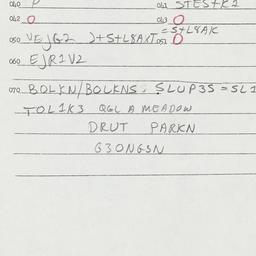 040 P 041 STESTKI
042 O 043 O
= S+L8AK
050 VEJG2 )+S+L8AXT 051 O
060 EJR1V2
070 BOLKN/BOLKNS. SLUP3S = SL1
TOL1K3 QGL A MEADOW
DRUT PARKN
G3ONGSN